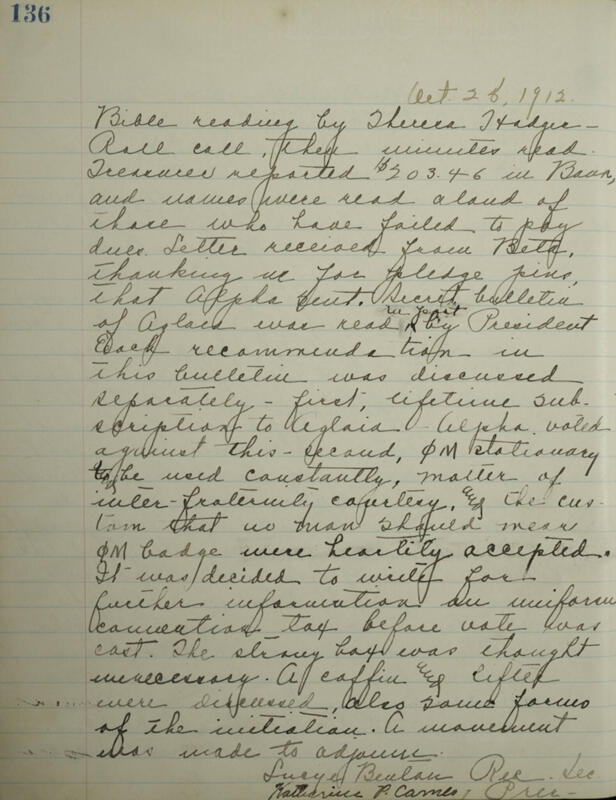 136
Oct. 26, 1912.
Bible reading by Theresa Hodges -
Roll call, then minutes read.
Treasurer reported $203.46 in Bank,
and names were read aloud of
those who have failed to pay
dues. Letter received from Beta,
thanking us for pledge pins,
that Alpha sent. Secret bulletin
of Aglaia was read in part by President
Each recommendation in
this bulletin was discussed
separately - first, lifetime sub-
scription to Aglaia - Alpha voted
against this - second, ΦM stationary
to be used constantly, matter of
inter-fraternity courtesy, and the cus-
tom that no man should wear
ΦM badge were heartily accepted.
It was decided to write for
further information on uniform
convention tax before vote was
cast. The strong box was thought
unnecessary. A coffin and lifter
were discussed, also some forms
of the initiation. A movement
was made to adjourn.
Lucye Benton Rec. Sec.
Katharine P. Carnes, Pres-